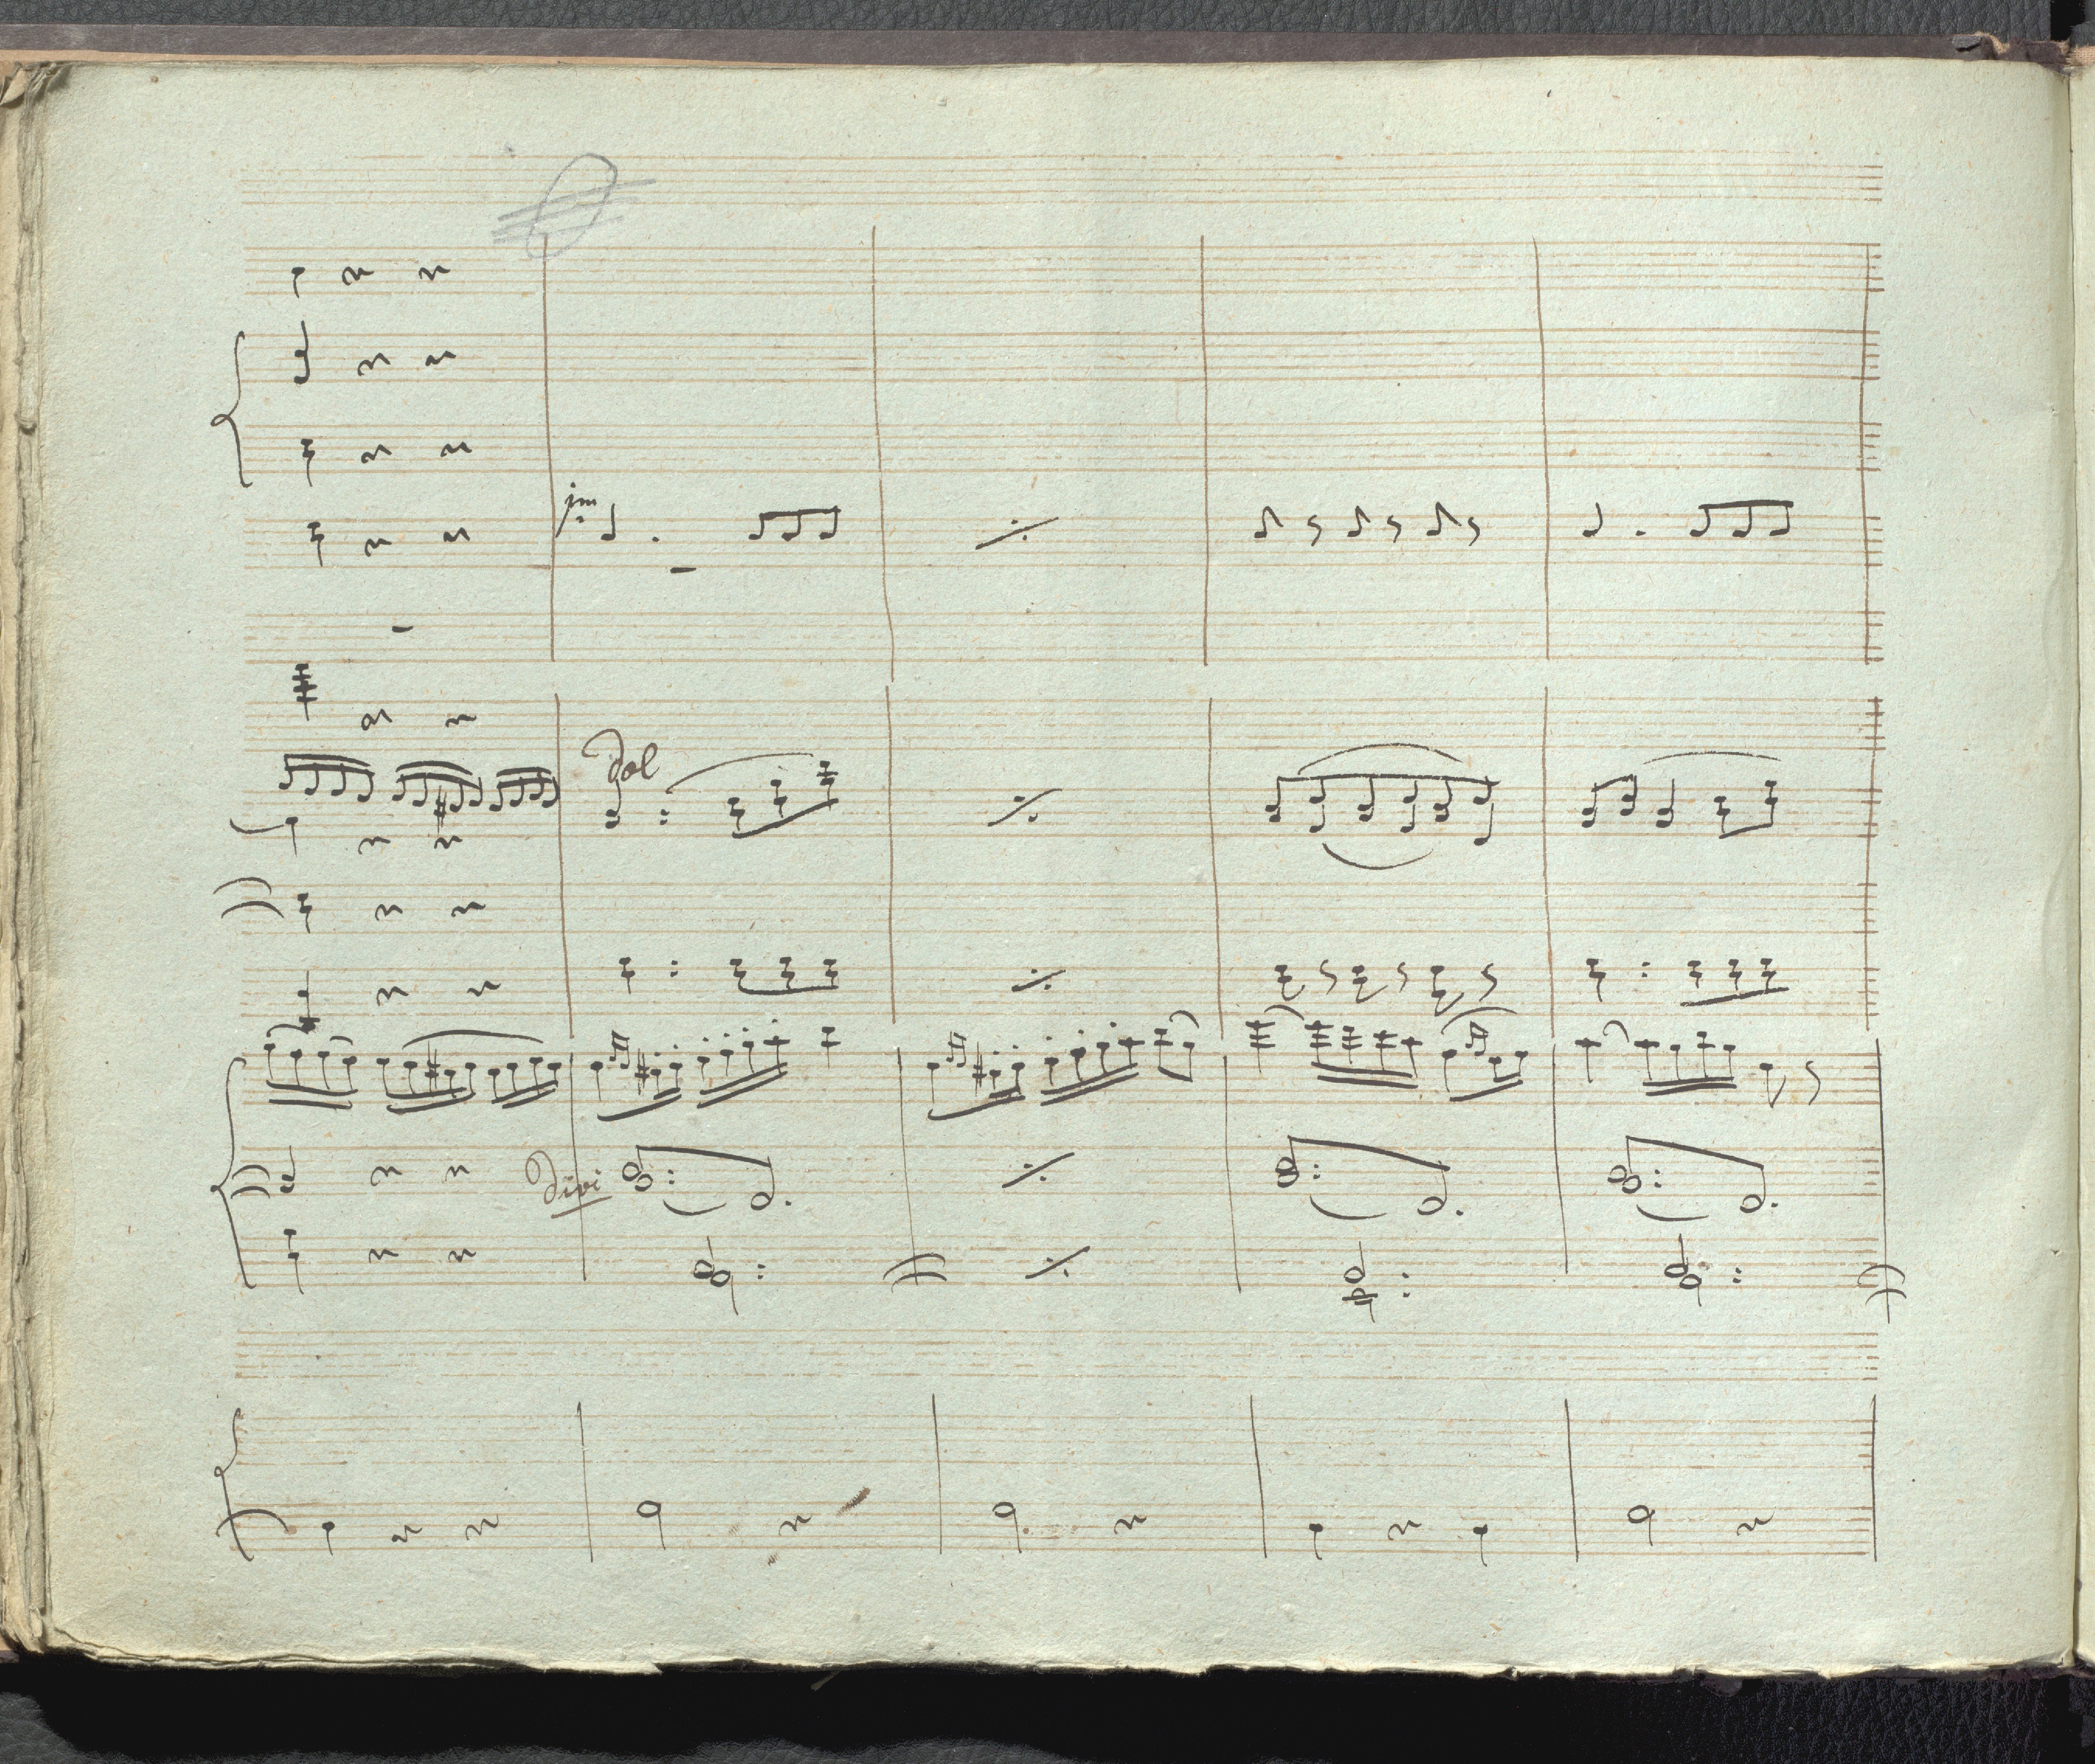 im
Dol
Divi